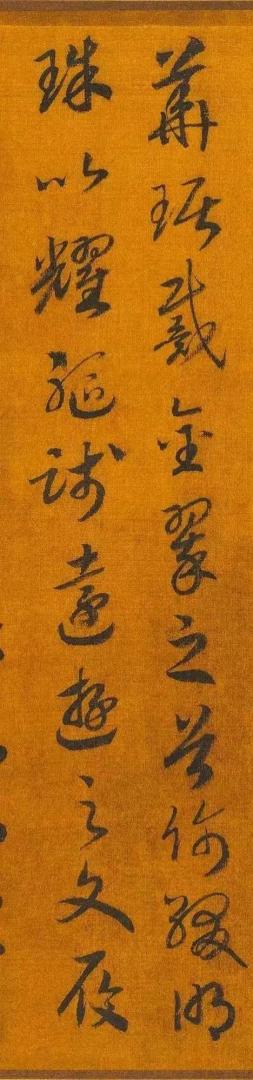 華琚戴金翠之首飾綴明
珠以耀軀踐遠遊之文履